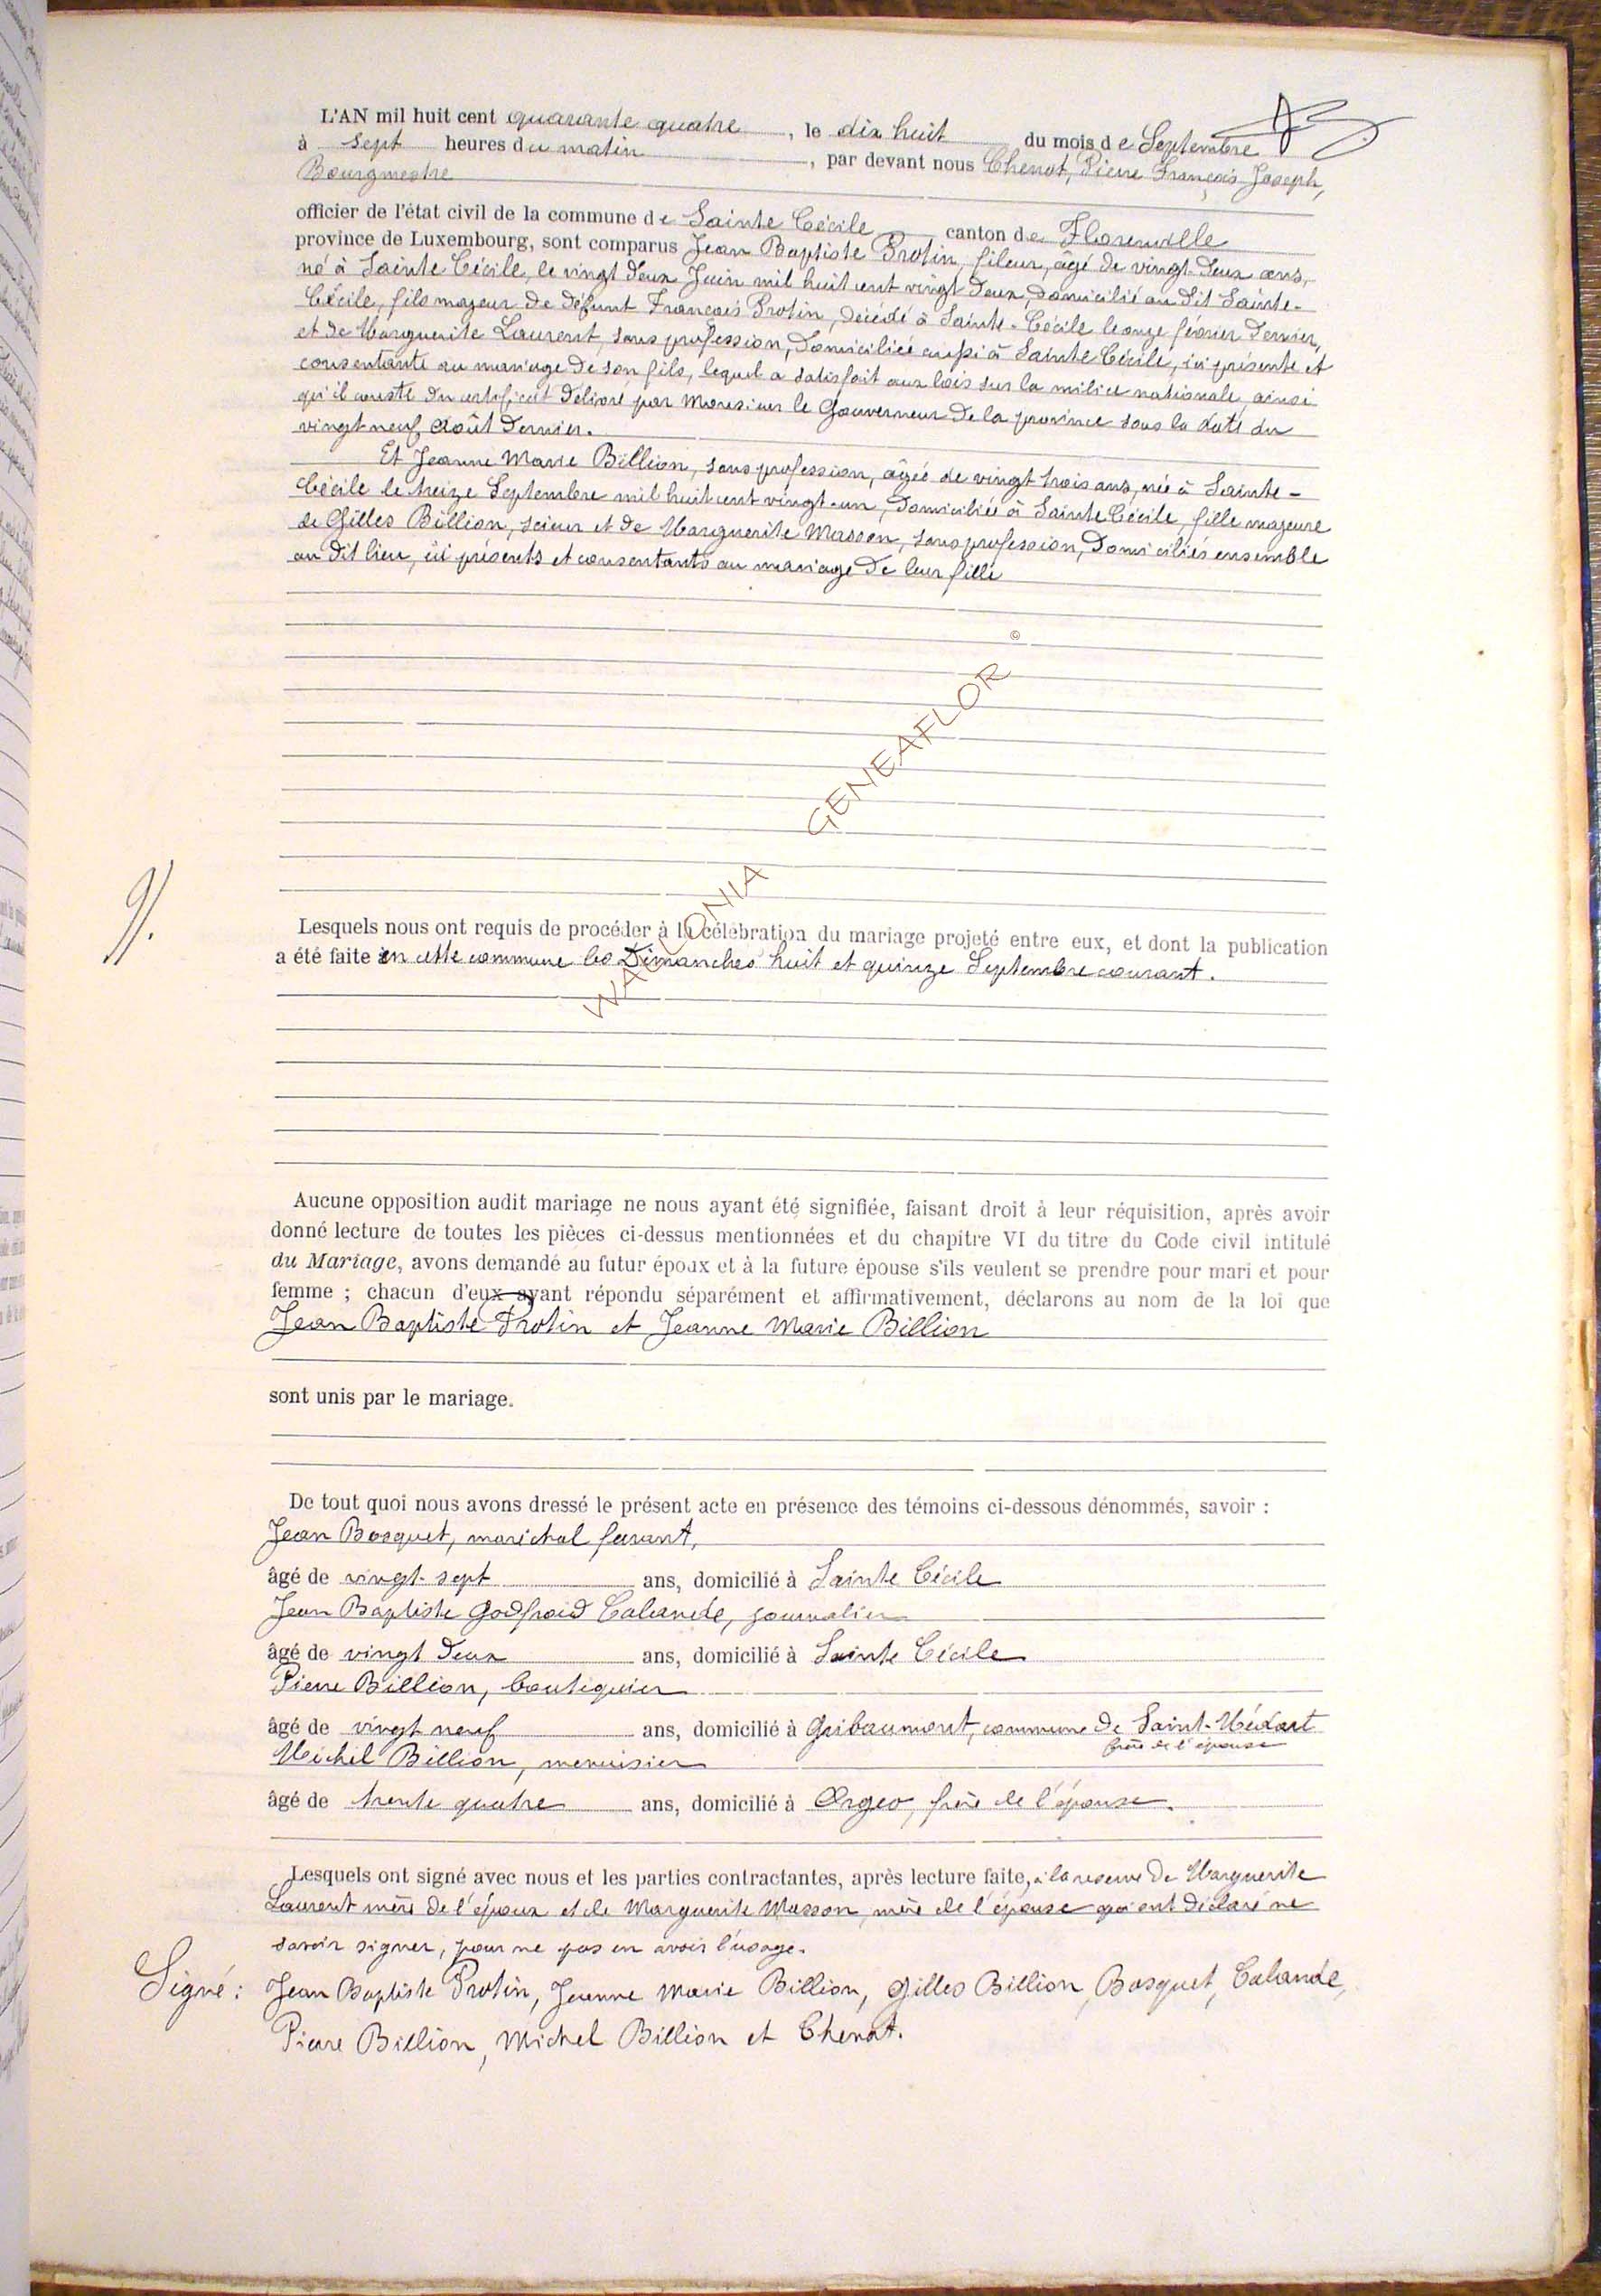 L'AN mil huit cent quarante quatre, le dix huit du mois de Septembre
à sept heures du matin, par devant nous Chenot, Pierre François Joseph,
Bourgmestre
officier de l'état civil de la commune de Sainte Cécile canton de Florenville
province de Luxembourg, sont comparus Jean Baptiste Protin, fileur, âgé de vingt-deux ans,
né à Sainte Cécile, le vingt deux Juin mil huit cent vingt deux, domicilié au dit Sainte-
Cécile, fils majeur de défunt François Protin, décédé à Sainte-Cécile le onze février dernier,
et de Marguerite Laurent, sans profession, domiciliée aussi à Sainte Cécile, ici présente et
consentante au mariage de son fils, lequel a satisfait aux lois sur la milice nationale, ainsi
qu'il conste du certificat délivré par Monsieur le Gouverneur de la province sous la date du
vingt neuf Août dernier.
Et Jeanne Marie Billion, sans profession, âgée de vingt trois ans, née à Sainte-
Cécile le treize Septembre mil huit cent vingt-un, domiciliée à Sainte Cécile, fille majeure
de Gilles Billion, scieur et de Marguerite Masson, sans profession, domiciliés ensemble
au dit lieu, ici présents et consentants au mariage de leur fille
WALLONIA GENEAFLOR ©
9.
Lesquels nous ont requis de procéder à la célébration du mariage projeté entre eux, et dont la publication
a été faite en cette commune les Dimanches huit et quinze Septembre courant.
Aucune opposition audit mariage ne nous ayant été signifiée, faisant droit à leur réquisition, après avoir
donné lecture de toutes les pièces ci-dessus mentionnées et du chapitre VI du titre du Code civil intitulé
du Mariage, avons demandé au futur époux et à la future épouse s'ils veulent se prendre pour mari et pour
femme ; chacun d'eux ayant répondu séparément et affirmativement, déclarons au nom de la loi que
Jean Baptiste Protin et Jeanne Marie Billion
sont unis par le mariage.
De tout quoi nous avons dressé le présent acte en présence des témoins ci-dessous dénommés, savoir :
Jean Bosquet, maréchal ferrant,
âgé de vingt-sept ans, domicilié à Sainte Cécile
Jean Baptiste Godfroid Calande, journalier
âgé de vingt deux ans, domicilié à Sainte Cécile
Pierre Billion, boutiquier
âgé de vingt neuf ans, domicilié à Gribaumont, commune de Saint-Médart
frère de l'épouse
Michel Billion, menuisier
âgé de trente quatre ans, domicilié à Orgeo, frère de l'épouse.
Lesquels ont signé avec nous et les parties contractantes, après lecture faite, à la reserve de Marguerite
Laurent mère de l'époux et de Marguerite Masson, mère de l'épouse qui ont déclaré ne
savoir signer, pour ne pas en avoir l'usage.
Signé : Jean Baptiste Protin, Jeanne Marie Billion, Gilles Billion, Bosquet, Calande,
Pierre Billion, Michel Billion et Chenot.